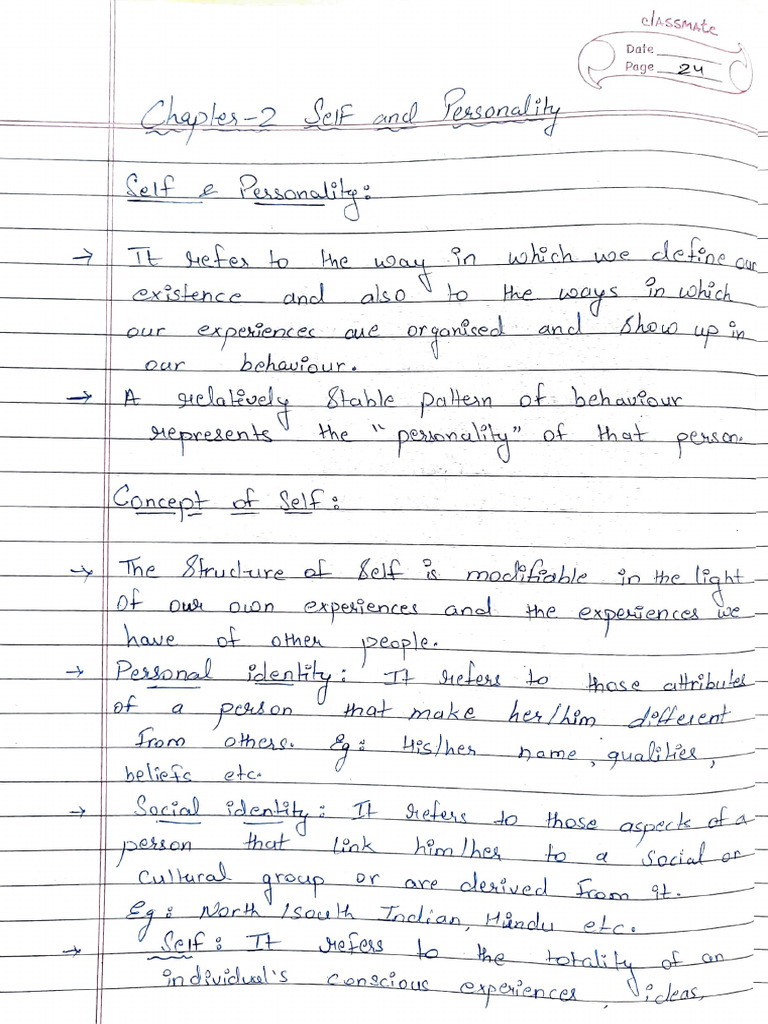 classmate
Date
Page 24
Chapter-2 Self and Personality
Self & Personality:
→ It refers to the way in which we define our
existence and also to the ways in which
our experiences are organised and show up in
our behaviour.
→ A relatively stable pattern of behaviour
represents the "personality" of that person.
Concept of Self:
→ The Structure of Self is modifiable in the light
of our own experiences and the experiences we
have of other people.
→ Personal identity: It refers to those attributes
of a person that make her/him different
from others. Eg: His/her name, qualities,
beliefs etc.
→ Social identity: It refers to those aspects of a
person that link him/her to a social or
cultural group or are derived from it.
Eg: North/South Indian, Hindu etc.
→ Self: It refers to the totality of an
individual's conscious experiences, ideas,